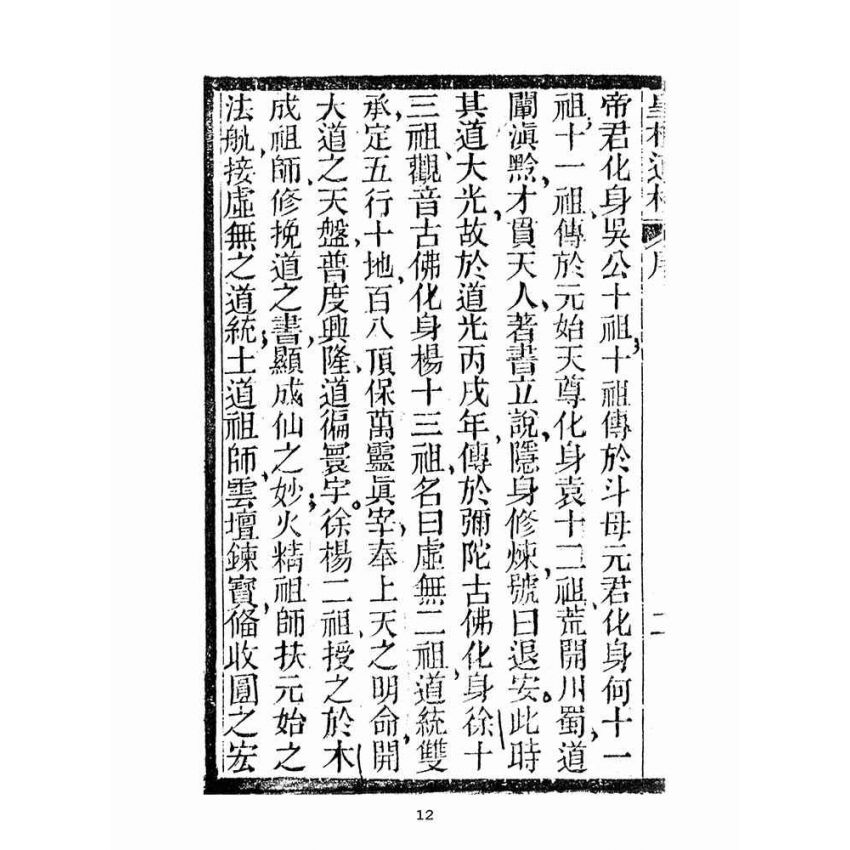 帝君化身吳公十祖十祖傳於斗母元君化身何十一
祖十一祖傳於元始天尊化身袁十二祖荒開川蜀道
闡滇黔才貫天人著書立說隱身修煉號曰退安此時
其道大光故於道光丙戌年傳於彌陀古佛化身徐十
三祖觀音古佛化身楊十三祖名曰虛無二祖道統雙
承定五行十地百八頂保萬靈眞宰奉上天之明命開
大道之天盤普度興隆道徧寰宇徐楊二祖授之於木
成祖師修挽道之書顯成仙之妙火精祖師扶元始之
法航接虛無之道統土道祖師雲壇鍊寶俻收圓之宏
二
12